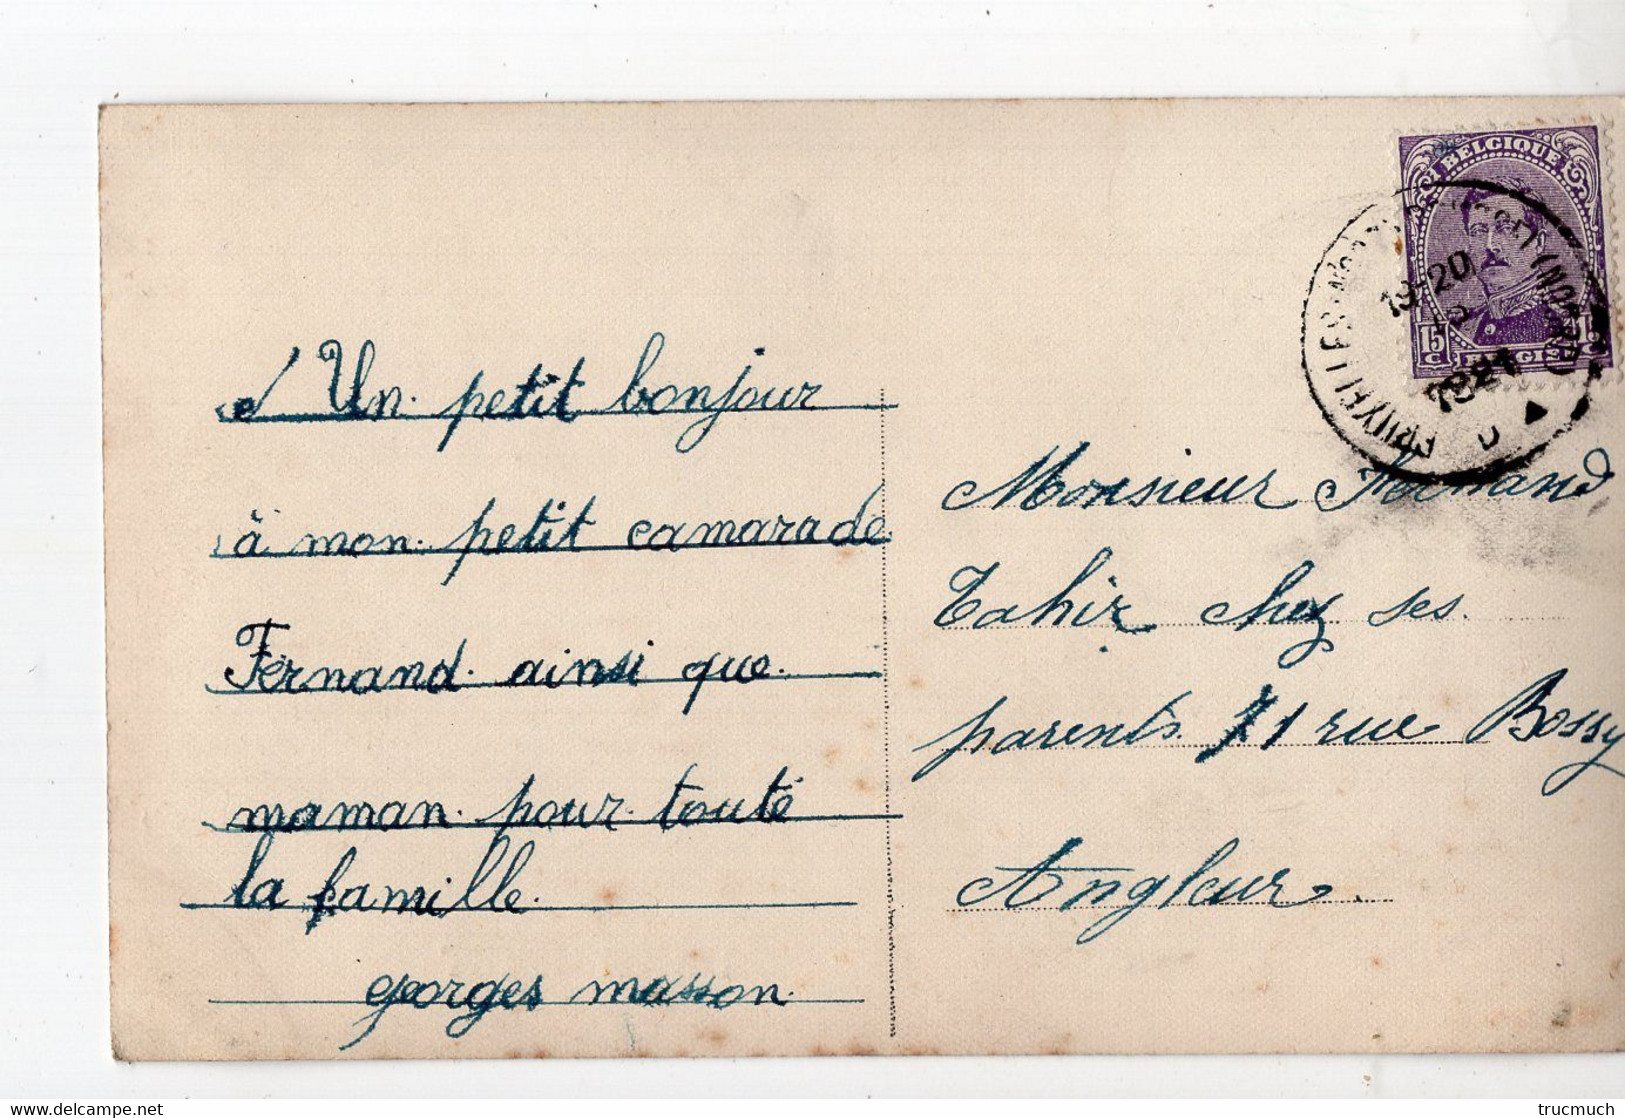 Un petit bonjour
à mon petit camarade
Fernand ainsi que
maman pour toute
la famille.
georges masson.
BELGIQUE
15
C
15
C
BELGIË
19-20
1921
(NOORD)
Monsieur Fernand
Tahir chez ses
parents 71 rue Bossy
Angleur.
delcampe.net
trucmuch